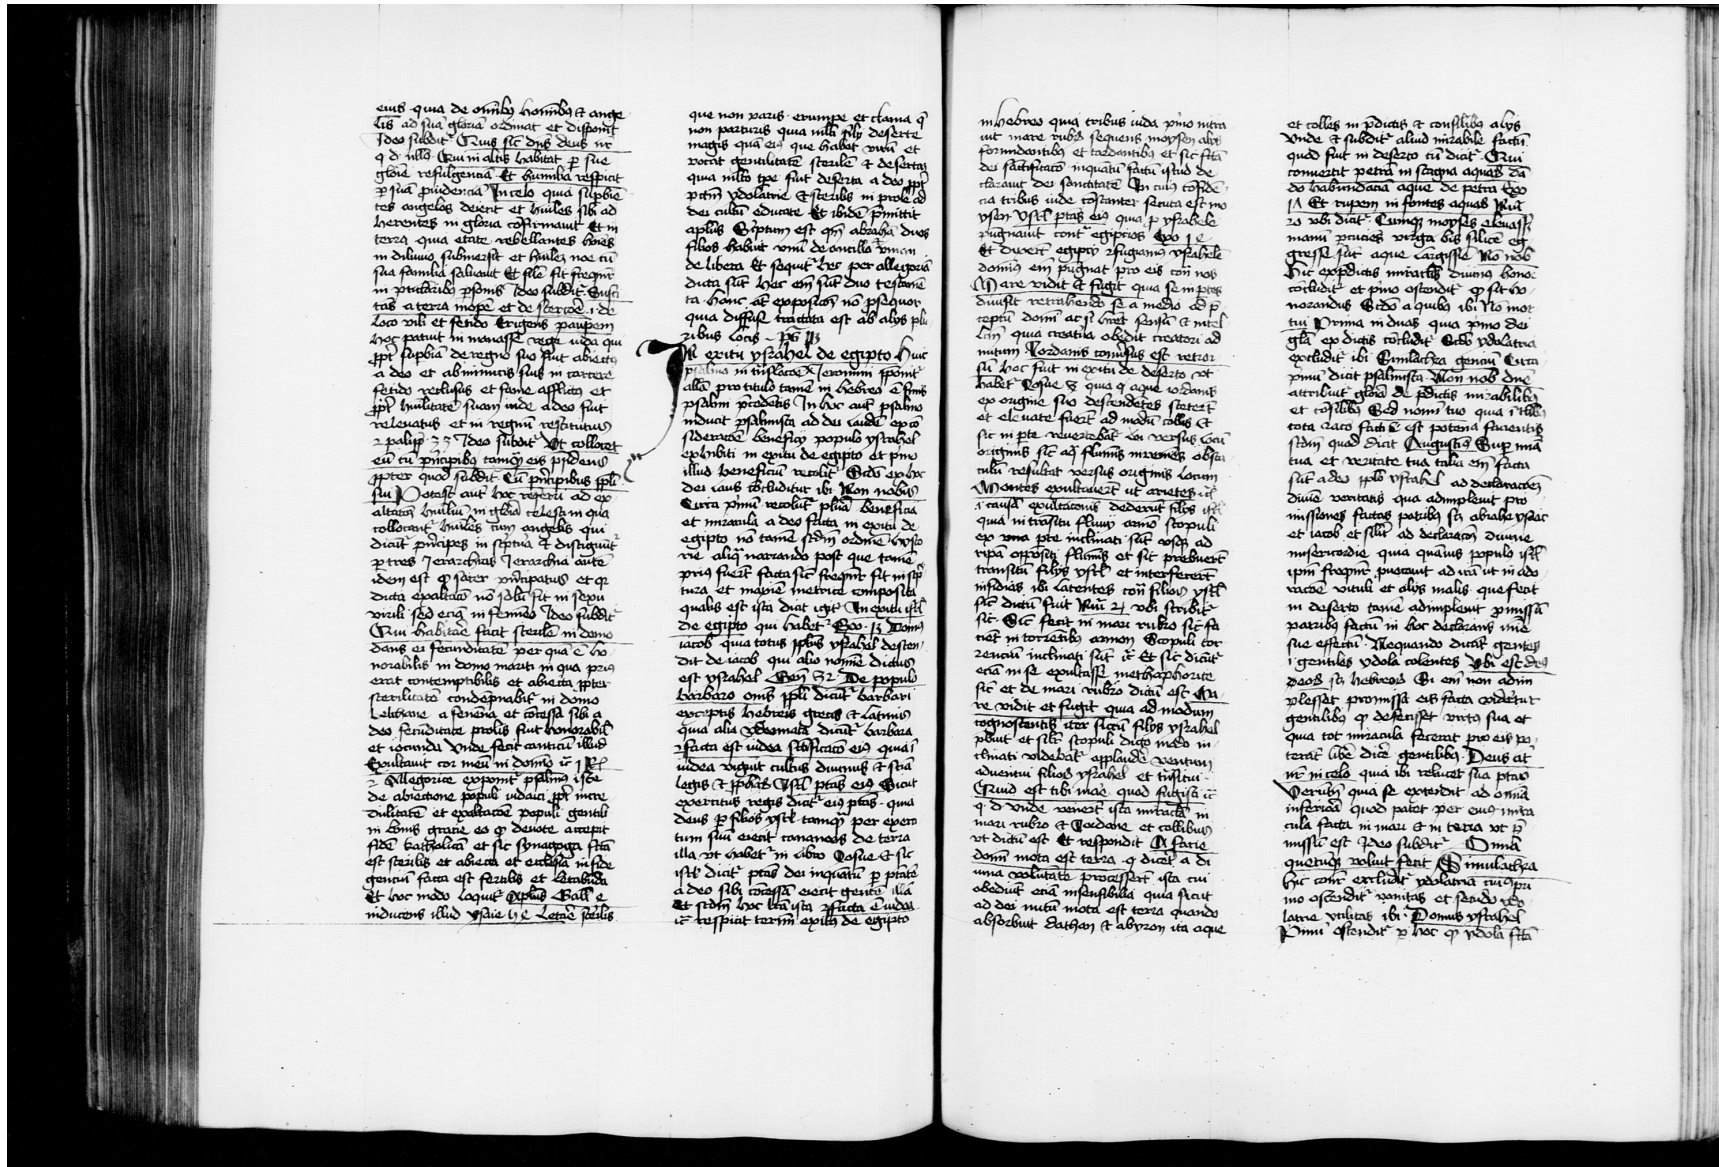 eius quia de om̄ibꝰ hoīnibꝰ et ange
lis ad suā gloriā ordinat et disponit
Ideo subdit᷑ Quis sic̄ dn̄s deus nr̄
q d nllꝰ Qui in altis habitat ꝓ sue
glorie refulgenciā Et humilia respicit
ꝑ suā prudenciā In celo quia supbiē
tes angelos deiecit et hūiles sibi ad
herentes in gloria cōfirmauit Et in
terra quia etate rebellantes hoīes
in diluuio submersit et hūilez noe cū
sua familia saluauit Et silī sit freqn̄t
in ꝑticlaribꝰ ꝑsonis Ideo subdit᷑ Susci
tās a terra inopē et de stercoē .i. de
loco vili et fetido Erigens pauperē
hoc patuit in manasse rege iuda qui
ppt̄ supbiā de regno suo fuit abiectꝰ
a deo et ab inimicis suis in carcere
fetido reclusus et fame afflictꝰ et
ppt̄ humilitatē suam inde a deo fuit
releuatus et in regnū restitutus
2 palip̄ 33 Ideo subdit᷑ Vt collocet
eū cū principibꝰ
ppter quod subdit᷑ Cū principibus ppli
sui Potest aut hoc referri ad ex
altatōn̄ hūiliū in gloriā celestē in qua
collocant᷑ hūiles cum angelis qui
dicūt᷑ principes in sc̄ptura et distiguūt᷑
ꝑ tres Ierarchias Ierarchia autē
idem est ꝙ sacer principatus et qꝛ
dicta exaltatō nō solū fit in sexu
virili sed eciā in femineo Ideo subdit᷑
Qui habitare facit sterilē in domo
dans ei fecunditatē per quā ē ho
norabilis in domo mariti in qua priꝰ
erat contemptibilis et abiecta ppter
sterilitatē condempnabit᷑ in domo
helchane a fenēna et cōcessa sibi a
deo fecunditate prolis fuit honorabił
et iocunda Vnde fecit canticū illud
Exultauit cor meū in domīo ꝛc̄ 1 R̄
2 Allegorice exponit᷑ psalmꝰ iste
de abiectione populi iudaici ppt̄ incre
dulitatē et exaltacōe populi gentil
in bonis gracie eo ꝙ deuote accepit
fidē katholicā et sic synagoga fctā
est sterilis et abiecta et ecclesia in fide
gencium facta est fertilis et letabūda
Et hoc modo loquit᷑ Apl̄us Gall e
inducens illud ysaie Letare sterilis
que non paris erumpe et clama q̄
non parturis quia mlti filij deserte
magis quā eiꝰ que habet virū et
vocat gentilitatē sterilē et desertā
quia mlto tp̄e fuit deserta a deo ppt̄
pctm̄ ydolatrie et sterilis in prole ad
dei cultū educate Et ibidē p̄mittit
apl̄us Scriptum est qm̄ abrahā duos
filios habuit vnū de ancilla et vnum
de libera Et sequit᷑ hoc per allegoriā
dicta sūt Hec em̄ sūt duo testame
ta hanc at expositōn̄ nō psequor
quia diffuse tractata est ab alijs plu
ribus locis p̄s
In exitu ysrahel de egipto Huic
psalmo in trāslacōe Ieronimi ponit᷑
alla pro titulo tamē in hebreo ē finis
psalmi p̄cedētis In hoc aut psalmo
inducit psalmista ad dei laudē ex cō
sideracōe beneficij populo ysrahel
exhibiti in exitu de egipto et pmo
illud beneficiū recolit᷑ Scdo ex hoc
dei laus cōcluditur ibi Non nobis
Circa primū recolūt᷑ plura beneficia
et miracula a deo facta in exitu de
egipto nō tamē scdm̄ ordinē hysto
rie aliqn̄ narrando post que tamē
priꝰ fuerūt facta sic̄ freqn̄t fit in scp̄
tura et maxīe metrice composita
qualis est ista dicit igit᷑ In exitu isrl̄
de egipto qui habet᷑ Exo 13 Domꝰ
iacob quia totus pplus ysrahel descen
dit de iacob qui alio nomīe dictus
est ysrahel Gen̄ 32 De populo
barbaro om̄is ppli dicūt᷑ barbari
exceptis hebreis grecis et latinis
quia alia ydeomata dicūt᷑ barbara
Facta est iudea sctificatō eiꝰ quia ī
iudea viguit cultus diuinus et sciā
legis et ppharꝝ Isrl̄ ptās eiꝰ Sicut
exercitus regis dicit᷑ eiꝰ ptās quia
deus ꝑ filios ysrl̄ tamqꝫ per exerci
tum suū eiecit cananeos de terra
illa vt habet᷑ in libro Iosue Et sic
isrl̄ dicit᷑ ptās dei inquātū ꝑ ptātē
a deo sibi cōcessā eiecit gentē illā
Et scdm̄ hoc lrā ista Facta ē iudea
ꝛc̄ respicit termī exitꝰ de egipto
in hebreo quia tribus iuda pmo intra
uit mare rubꝝ sequens moysen alijs
formidantibꝰ et tardantibꝰ et sic fctā
dei sāctificatō inquātū factū istud de
clarauit dei sanctitatē In cuiꝰ cōfidē
cia tribus iude cōstanter secuta est mo
ysen Vsrl̄ ptas eiꝰ quia ꝓ ysrahele
pugnauit contra egipcios Exo
Et dixerūt egipcij fugiamꝰ ysrahelē
dominꝰ em̄ pugnat pro eis con̄ nos
Mare vidit et fugit quia se in ptes
diuisit retrahendo se a medio ad p̄
ceptū domī ac si hr̄et sensū et intel
lc̄m quia creatura obedit creatori ad
nutum Iordanis conuersus est retror
sū hoc fuit in exitu de deserto vt
habet᷑ Iosue 3 quia qn̄ aque iordanis
ex origine suo descendētes steterūt
et eleuate fuerūt ad modū collis et
sic in ꝑte reuertebāt᷑ versus locū
originis sic̄ aqꝫ fluminis inueniēs obsta
culū resultat versus originis locum
Montes exultauerūt ut arietes ꝛc̄
.i. causā exultacōnis dederūt filijs isrl̄
quia in trāsitu fluuij arnon scopuli
ex vna ꝑte inclinati sūt vsqꝫ ad
ripā oppositā fluminis et sic prebuerūt
transitū filijs ysrl̄ et interfecerūt
insidiās ibi latentes con̄ filios ysrl̄
sic̄ dictū fuit Nūi 21 vbi scribit᷑
sic Sic fecit in mari rubro sic fa
ciet in torrētibꝰ arnon Scopuli tor
renciū inclinati sūt ꝛc̄ Et sic dicūt᷑
eciā in se exultasse methaphorice
sic et de mari rubro dictū est Ma
re vidit et fugit quia ad modum
cognoscentis iter sicciū filijs ysrahel
p̄buit et silr̄ scopuli dicto modo in
clinati videbāt᷑ applaudē ventum
aduentui filioꝝ ysrahel et trāsitui
Quid est tibi mare quod fugisti ꝛc̄
q d vnde venerūt ista miracla in
mari rubro et Iordane et collibus
vt dictū est Et respondit A facie
domī mota est terra q dicet a di
uina volūtate processerūt ista cui
obediūt eciā insensibilia quia sicut
ad dei nutū mota est terra quando
absorbuit dathan et abyron ita aque
et colles in p̄dictis et consilibꝰ alijs
Vnde et subdit᷑ aliud mirabile factū
quod fuit in deserto cū dicit᷑ Qui
conuertit petrā in stagna aquaꝝ dā
do habundācia aque de petra Exo
17 Et rupem in fontes aquaꝝ Nūi
20 vbi dicit᷑ Cumqꝫ moyses eleuassꝫ
manū percuciēs virga bis silicē eg
resse sūt aque largisse Nō nob
hic expeditis miraclis diuinus honor
cōcludit᷑ et pmo ostendit᷑ ꝙ sit ho
norandus Scdo a quibꝰ ibi Nō mor
tui Prima in duas quia pmo dei
glīa ex dictis cōcludit᷑ Scdo ydolatria
excludit᷑ ibi Simulachra gencium Circa
primū dicit psalmista Non nob dn̄e
attribuit᷑ gloriā de p̄dictis mirabilibꝰ
et cōsilibꝰ Sed nomī tuo quia ī tlibꝰ
tota racō facti ē est potencia facientis
scdm̄ quod dicit Augustinꝰ Sup mīa
tua et veritate tua talia em̄ facta
sūt a deo pplo ysrahel ad declaracōn̄
diuīe veritatis qua adimpleuit pro
missiones factas patribꝰ scꝫ abrahe ysaac
et iacob et silīr ad declaracōn̄ diuine
misericordie quia quāuis populꝰ isrl̄
ipm̄ freqn̄t puocauit ad irā vt in ado
racōe vituli et alijs malis que fecit
in deserto tamē adimpleuit pmissā
patribꝰ factū in hoc declarans mīe
sue effectū Nequando dicāt gentes
.i. gentiles ydola colentes Vbi est deꝰ
eorꝝ scꝫ hebreorꝝ Si em̄ non adim
plesset promissa eis facta videret᷑
gentilibꝰ ꝙ defecisset virtꝰ sua et
quia tot miracula fecerat pro eis po
terāt libē dicē gentilibꝰ Deus aut̄
nr̄ in celo quia ibi relucet sua ptās
Verūtm̄ quia se extendit ad omīa
inferiora quod patet per eius mira
cula facta in mari et in terra vt p̄
missū est Ideo subdit᷑ Omīa
quecūqꝫ voluit fecit Simulachra
hic cōnr̄ excludit᷑ ydolatria cuiꝰ pri
mo ostendit᷑ vanitas et secūdo ydo
latrie vtilitas ibi Domus ysrahel
Primū ostendit᷑ ꝑ hoc ꝙ ydola fctā